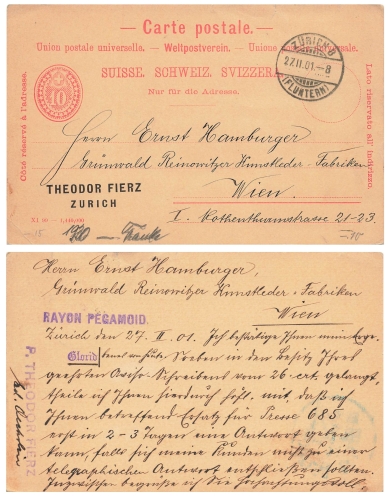 — Carte postale. —
Union postale universelle. — Weltpostverein. — Unione postale universale.
SUISSE. SCHWEIZ. SVIZZERA.
Nur für die Adresse.
ZÜRICH 6
27.II.01.–8
(FLUNTERN)
10
Côté réservé à l'adresse.
Lato riservato all'indirizzo.
Herrn Ernst Hamburger
Grünwald Reinowitzer Kunstleder-Fabriken
THEODOR FIERZ
ZURICH
Wien.
I. Rothenthurmstrasse 21-23.
XI. 00
Herrn Ernst Hamburger,
Grünwald Reinowitzer Kunstleder-Fabriken
Wien
RAYON PEGAMOID.
Zürich den 27. II. 01. Ich bestätige Ihnen mein
Glorid Soeben in den Besitz Ihres
geehrten Schreibens vom 26. crt. gelangt,
theile ich Ihnen hiedurch höfl. mit, daß ich
Ihnen betreffend Ersatz für Presse 685
erst in 2-3 Tagen eine Antwort geben
kann, falls sich meine Kunden nicht zu einer
telegraphischen Antwort entschließen sollten.
Inzwischen begrüße ich Sie Hochachtungsvoll
P. THEODOR FIERZ